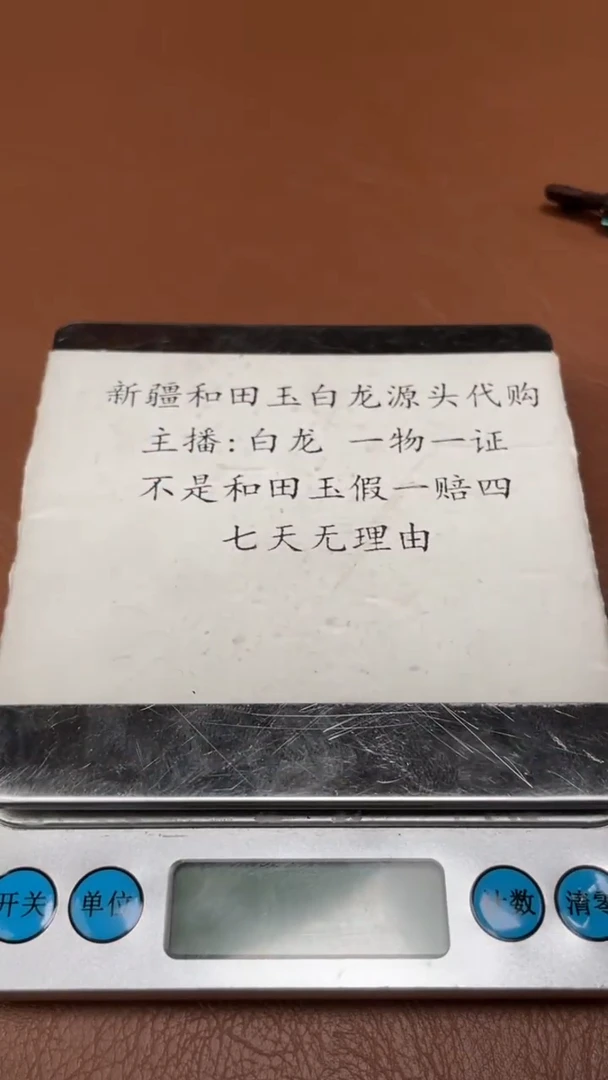 新疆和田玉白龙源头代购
主播:白龙 一物一证
不是和田玉假一赔四
七天无理由
开关 单位 计数 清零